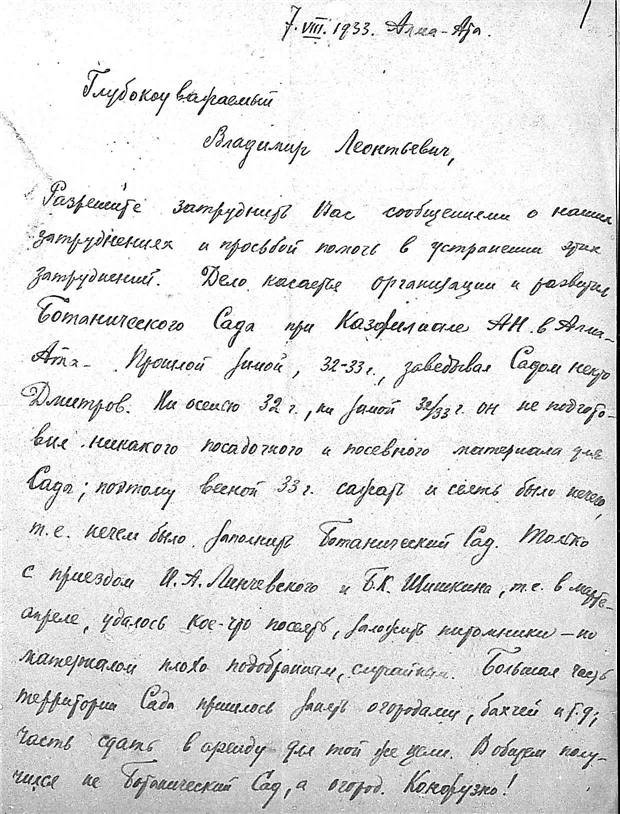 1
7.VIII.1933. Алма-Ата.
Глубокоуважаемый
Владимир Леонтьевич,
Разрешите затруднить Вас сообщениями о наших
затруднениях и просьбой помочь в устранении этих
затруднений. Дело касается организации и развития
Ботанического Сада при Казфилиале АН в Алма-
Ата. Прошлой зимой, 32-33 г., заведывал Садом некто
Дмитров. Ни осенью 32 г., ни зимой 32/33 г. он не подгото-
вил никакого посадочного и посевного материала для
Сада; поэтому весной 33 г. сажать и сеять было нечего,
т.е. нечем было заполнить Ботанический Сад. Только
с приездом И.А. Линчевского и Б.К. Шишкина, т.е. в марте-
апреле, удалось кое-что посеять, заложить питомники – но
материалом плохо подобранным, случайным. Большая часть
территории Сада пришлось занять огородами, бахчей и т.д;
часть сдать в аренду для той же цели. В общем полу-
чился не Ботанический Сад, а огород. Конфузно!